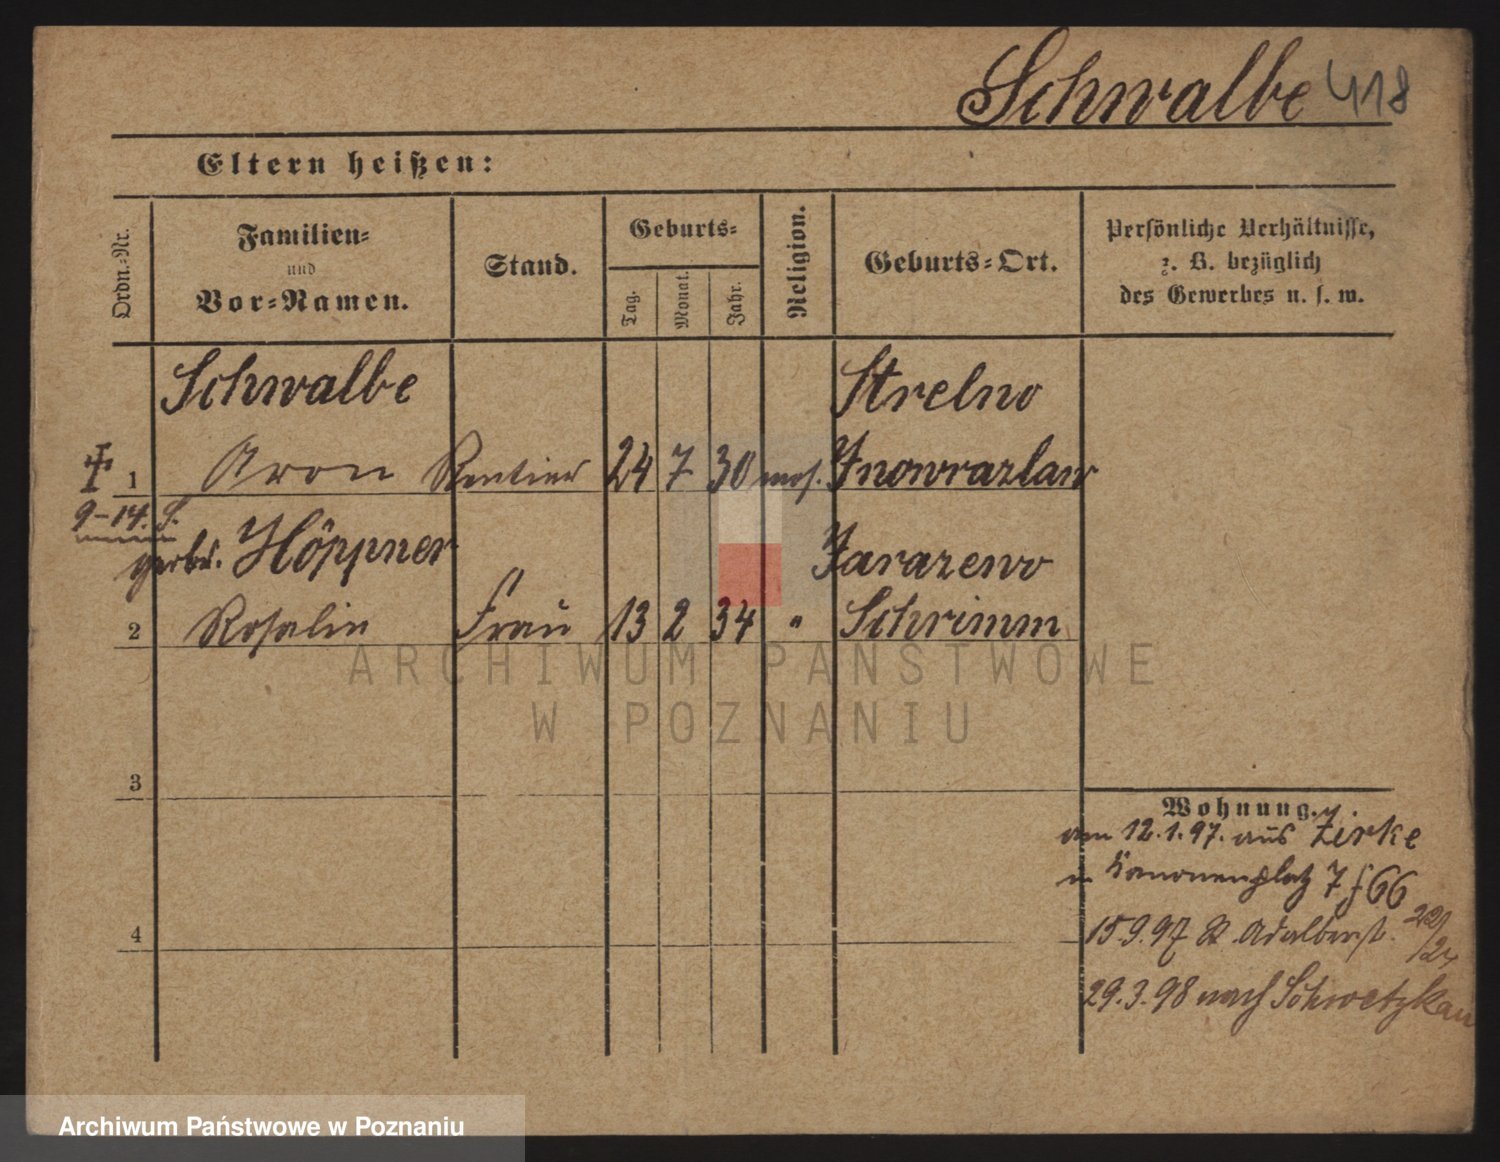 Schwalbe 418
Eltern heißen:
Ordn.-Nr.
Familien-
und
Vor-Namen.
Stand.
Geburts-
Tag.
Monat.
Jahr.
Religion.
Geburts-Ort.
Persönliche Verhältnisse,
z. B. bezüglich
des Gewerbes u. s. w.
Schwalbe Strelno
1 Aron Rentier 24 7 30 mos. Inowrazlaw
9-14.
gerb. Höppner Jarazewo
2 Rosalie Frau 13 2 34 " Schrimm
ARCHIWUM PAŃSTWOWE
W POZNANIU
3
Wohnung.
am 12.1.97. aus Zirke
in Kanonenplatz 7 f 66
4
15.9.97 St. Adalbert. 22/
/24
29.3.98 nach Schwetzkau
Archiwum Państwowe w Poznaniu